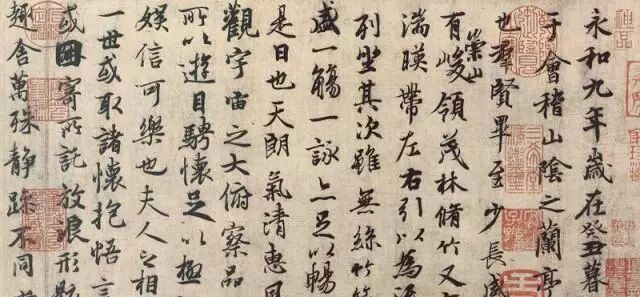 永和九年歲在癸丑暮
于會稽山陰之蘭亭
也羣賢畢至少長咸
有崇山峻領茂林脩竹又
湍暎帶左右引以為流
列坐其次雖無絲竹管
盛一觴一詠亦足以暢
是日也天朗氣清惠風
觀宇宙之大俯察品
所以遊目騁懷足以極
娛信可樂也夫人之相
一世或取諸懷抱悟言
或因寄所託放浪形骸
趣舍萬殊靜躁不同當